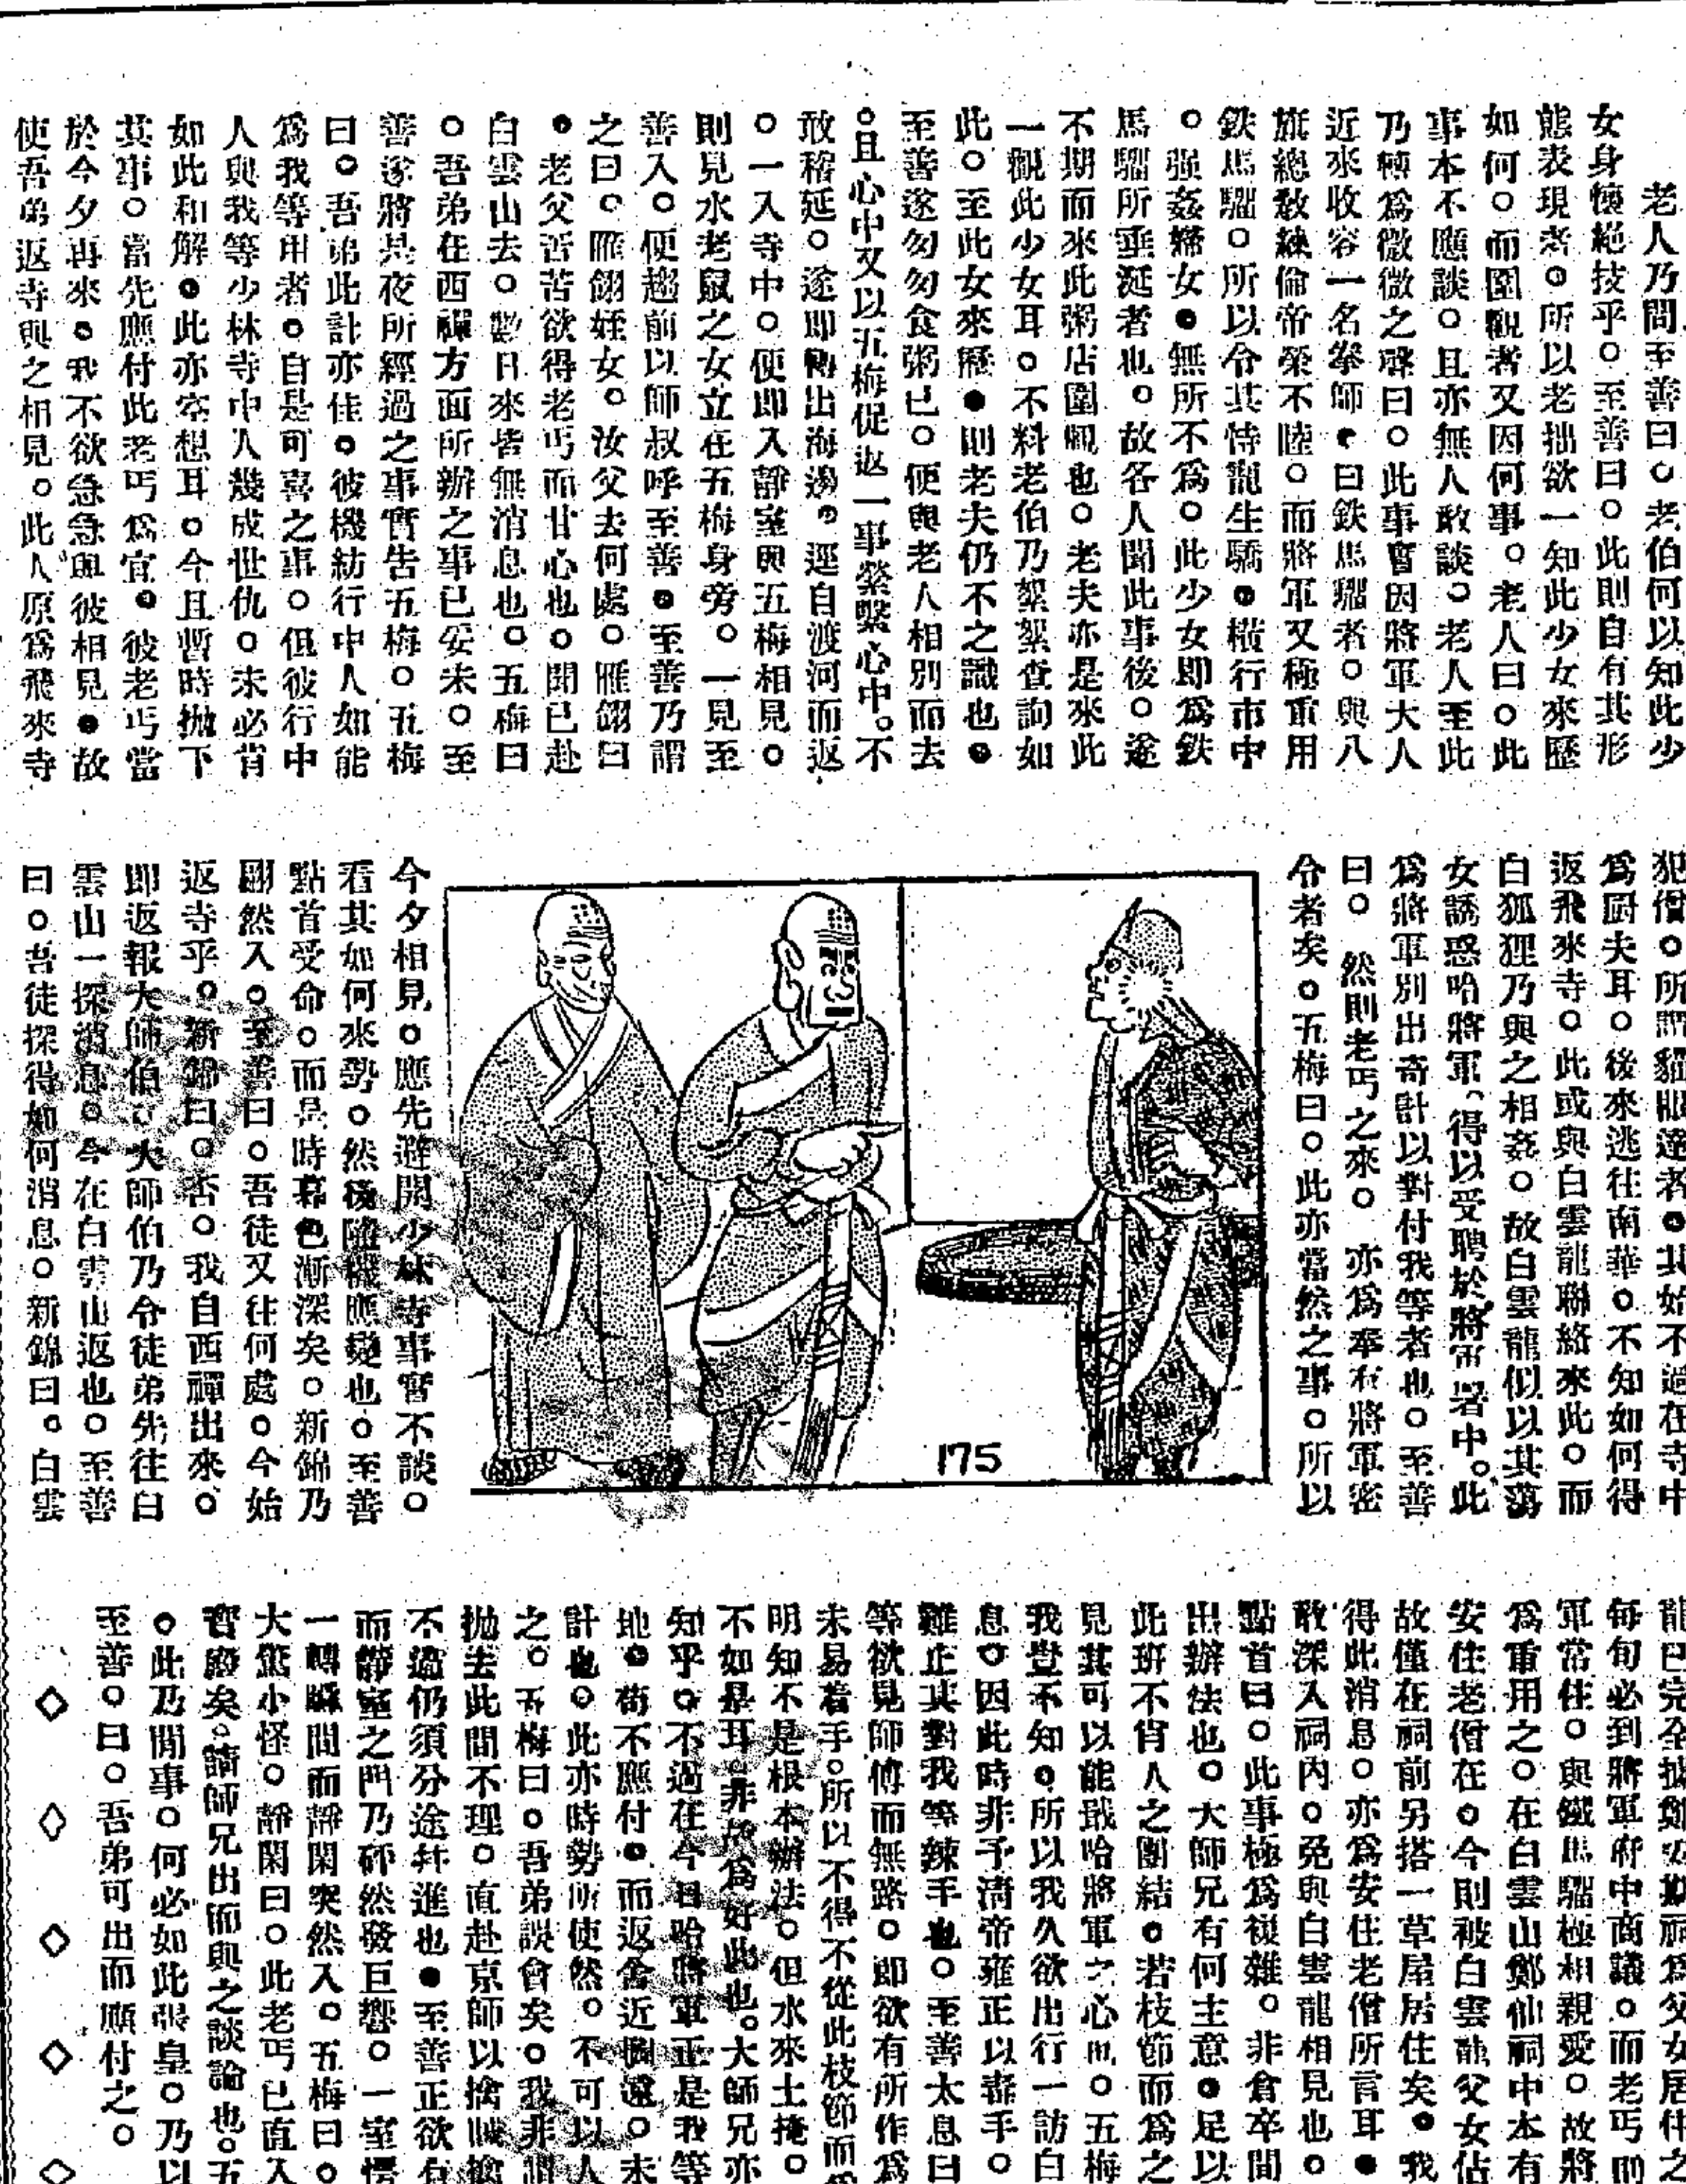 老人乃問至善曰。老伯何以知此少
女身懷絕技乎。至善曰。此則自有其形
態表現者。所以老拙欲一知此少女來歷
如何。而圍觀者又因何事。老人曰。此
事本不應談。且亦無人敢談。老人至此
乃轉爲微微之聲曰。此事實因將軍大人
近來收容一名拳師。曰鉄馬騮者。與八
旗總敎練倫帝榮不睦。而將軍又極重用
鉄馬騮。所以令其恃龍生驕。橫行市中
。强姦婦女。無所不爲。此少女即爲鉄
馬騮所垂涎者也。故各人聞此事後。遂
不期而來此粥店圍觀也。老夫亦是來此
一觀此少女耳。不料老伯乃絮絮查詢如
此。至此女來歷。則老夫仍不之識也。
至善遂匆匆食粥已。便與老人相別而去
。且心中又以五梅促返一事縈繫心中。不
敢稽延。遂即轉出海邊。逕自渡河而返
。一入寺中。便即入靜室與五梅相見。
則見水老鼠之女立在五梅身旁。一見至
善入。便趨前以師叔呼至善。至善乃謂
之曰。雁翎姪女。汝父去何處。雁翎曰
。老父苦苦欲得老丐而甘心也。聞已赴
白雲山去。數日來皆無消息也。五梅曰
。吾弟在西禪方面所辦之事已妥未。至
善遂將其夜所經過之事實告五梅。五梅
曰。吾弟此計亦佳。彼機紡行中人如能
爲我等用者。自是可喜之事。但彼行中
人與我等少林寺中人幾成世仇。未必肯
如此和解。此亦空想耳。今且暫時拋下
其事。當先應付此老丐爲宜。彼老丐當
於今夕再來。我不欲急急與彼相見。故
使吾弟返寺與之相見。此人原爲飛來寺
犯僧。所謂貓眼達者。其始不過在寺中
爲厨夫耳。後來逃往南華。不知如何得
返飛來寺。此或與白雲龍聯絡來此。而
白狐狸乃與之相姦。故白雲龍似以其蕩
女誘惑哈將軍、得以受聘於將軍署中。此
爲將軍別出奇計以對付我等者也。至善
曰。然則老丐之來。亦爲奉有將軍密
令者矣。五梅曰。此亦當然之事。所以
今夕相見。應先避開少林寺事實不談。
看其如何來勢。然後隨機應變也。至善
點首受命。而是時暮色漸深矣。新錦乃
翩然入。至善曰。吾徒又往何處。今始
返寺乎。新錦曰。否。我自西禪出來。
即返報大師伯。大師伯乃令徒弟先往白
雲山一探消息。今在白雲山返也。至善
曰。吾徒探得如何消息。新錦曰。白雲
175
龍已完全據鄭安期祠爲父女居住之
每旬必到將軍府中商議。而老丐即
軍常住。與鐵馬騮極相親愛。故將
爲重用之。在白雲山鄭仙祠中本有
安住老僧在。今則被白雲龍父女佔
故僅在祠前另搭一草屋居住矣。我
得此消息。亦爲安住老僧所言耳。
敢深入祠內。免與白雲龍相見也。
點首曰。此事極爲複雜。非倉卒間
出辦法也。大師兄有何主意。足以
此班不肖人之團結。若枝節而爲之
見其可以能戢哈將軍之心也。五梅
我豈不知。所以我久欲出行一訪白
息。因此時非予淸帝雍正以毒手。
雖正其對我等辣手也。至善太息曰
等欲見師傅而無路。即欲有所作爲
未易着手。所以不得不從此枝節而
明知不是根本辦法。但水來土掩。
不如是耳。非故爲好此也。大師兄亦
知乎。不過在今日哈將軍正是我等
地。苟不應付。而返舍近圖遠。未
計也。此亦時勢所使然。不可以人
之。五梅曰。吾弟誤會矣。我非謂
拋去此間不理。直赴京師以擒賊擒
不過仍須分途幷進也。至善正欲有
而靜室之門乃砰然發巨響。一室愕
一轉瞬間而靜閑突然入。五梅曰。
大驚小怪。靜閑曰。此老丐已直入
寶殿矣。請師兄出而與之談論也。五
。此乃閒事。何必如此張皇。乃以
至善。曰。吾弟可出而應付之。